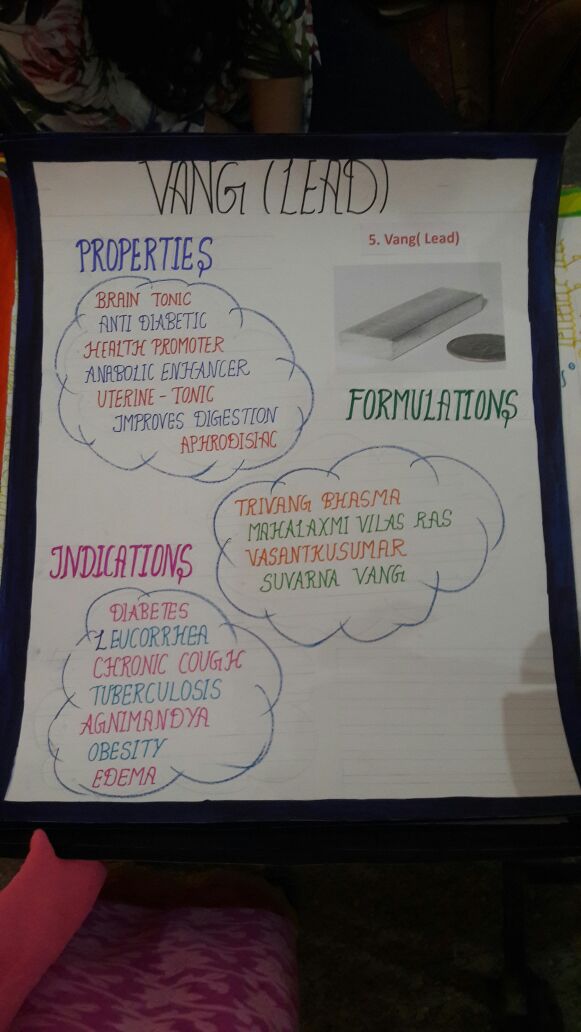 VANG (LEAD)
PROPERTIES
BRAIN TONIC
ANTI DIABETIC
HEALTH PROMOTER
ANABOLIC ENHANCER
UTERINE - TONIC
IMPROVES DIGESTION
APHRODISIAC
5. Vang( Lead)
FORMULATIONS
TRIVANG BHASMA
MAHALAXMI VILAS RAS
VASANTKUSUMAR
SUVARNA VANG
INDICATIONS
DIABETES
LEUCORRHEA
CHRONIC COUGH
TUBERCULOSIS
AGNIMANDYA
OBESITY
EDEMA